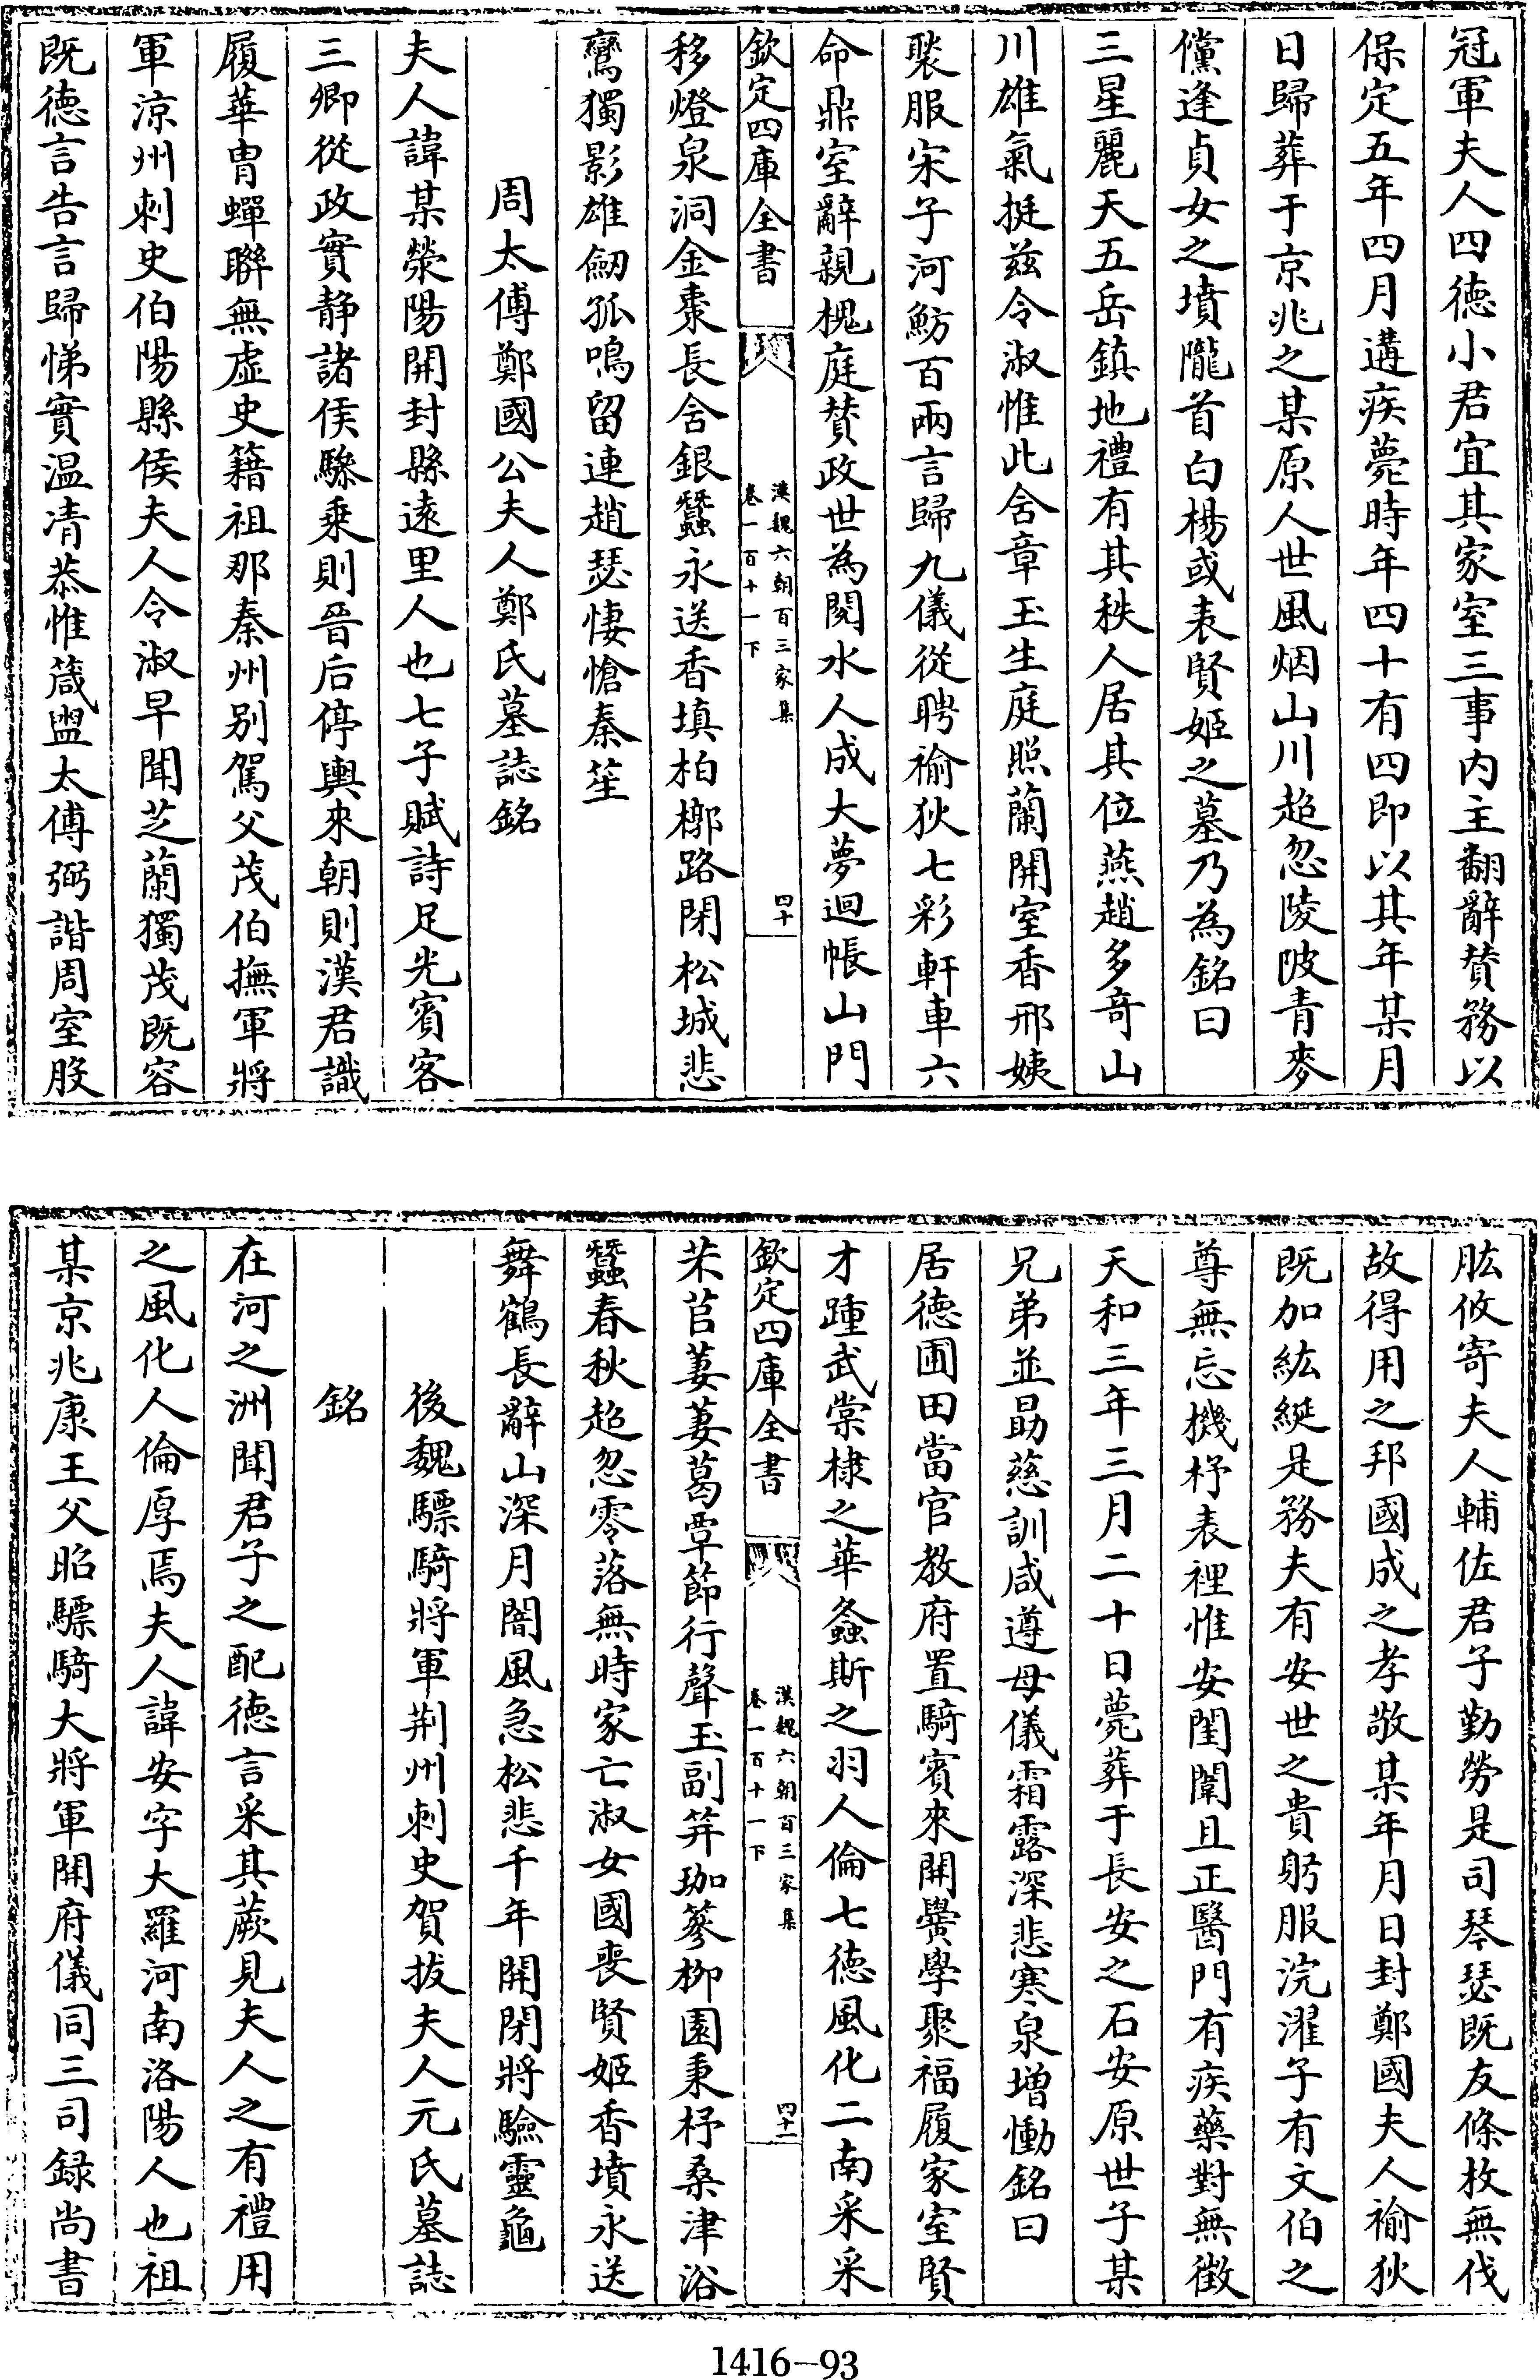 冠軍夫人四徳小君宜其家室三事内主翻辭賛務以
保定五年四月遘疾薨時年四十有四即以其年某月
日歸葬于京兆之某原人世風烟山川超忽陵陂青麥
儻逢貞女之墳隴首白楊或表賢姬之墓乃為銘曰
三星麗天五岳鎮地禮有其秩人居其位燕趙多竒山
川雄氣挺兹令淑惟此含章玉生庭照蘭開室香邢姨
褧服宋子河魴百兩言歸九儀從聘褕狄七彩軒車六
命鼎室辭親槐庭賛政世為閱水人成大夢迴帳山門
欽定四庫全書
漢魏六朝百三家集
卷一百十一下
四十
移燈泉洞金棗長含銀蠶永送香填柏槨路閉松城悲
鸞獨影雄劒孤鳴留連趙瑟悽愴秦笙
周太傅鄭國公夫人鄭氏墓誌銘
夫人諱某滎陽開封縣遠里人也七子賦詩足光賓客
三卿從政實静諸侯驂乗則晉后停輿來朝則漢君識
履華胄蟬聯無虚史籍祖那秦州别駕父茂伯撫軍將
軍涼州刺史伯陽縣侯夫人令淑早聞芝蘭獨茂既容
既徳言告言歸悌實温清恭惟箴盥太傅弼諧周室股
肱攸寄夫人輔佐君子勤勞是司琴瑟既友條枚無伐
故得用之邦國成之孝敬某年月日封鄭國夫人褕狄
既加紘綖是務夫有安世之貴躬服浣濯子有文伯之
尊無忘機杼表裡惟安閨闈且正醫門有疾藥對無徴
天和三年三月二十日薨葬于長安之石安原世子某
兄弟並朂慈訓咸遵母儀霜露深悲寒泉增慟銘曰
居徳圃田當官教府置騎賓來開黌學聚福履家室賢
才踵武棠棣之華螽斯之羽人倫七徳風化二南采采
欽定四庫全書
漢魏六朝百三家集
卷一百十一下
四十一
芣苢萋萋葛覃節行聲玉副笄珈篸柳園秉杼桑津浴
蠶春秋超忽零落無時家亡淑女國喪賢姬香墳永送
舞鶴長辭山深月闇風急松悲千年開閉將驗靈龜
後魏驃騎將軍荆州刺史賀拔夫人元氏墓誌
銘
在河之洲聞君子之配徳言采其蕨見夫人之有禮用
之風化人倫厚焉夫人諱安字大羅河南洛陽人也祖
某京兆康王父昭驃騎大將軍開府儀同三司録尚書
1416-93